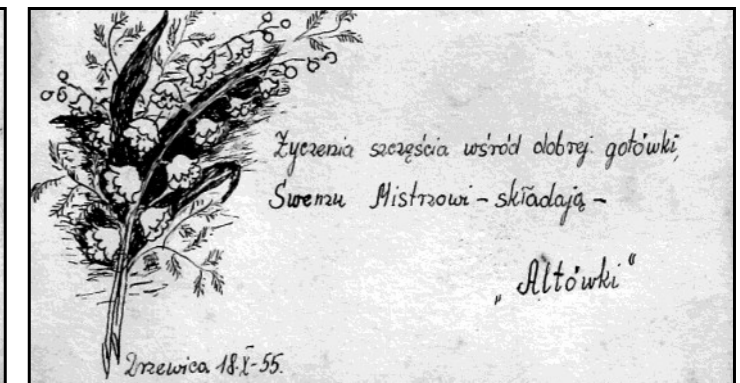 Życzenia szczęścia wśród dobrej gotówki,
Swemu Mistrzowi - składają -
„Altówki"
Drzewica 18.X-55.